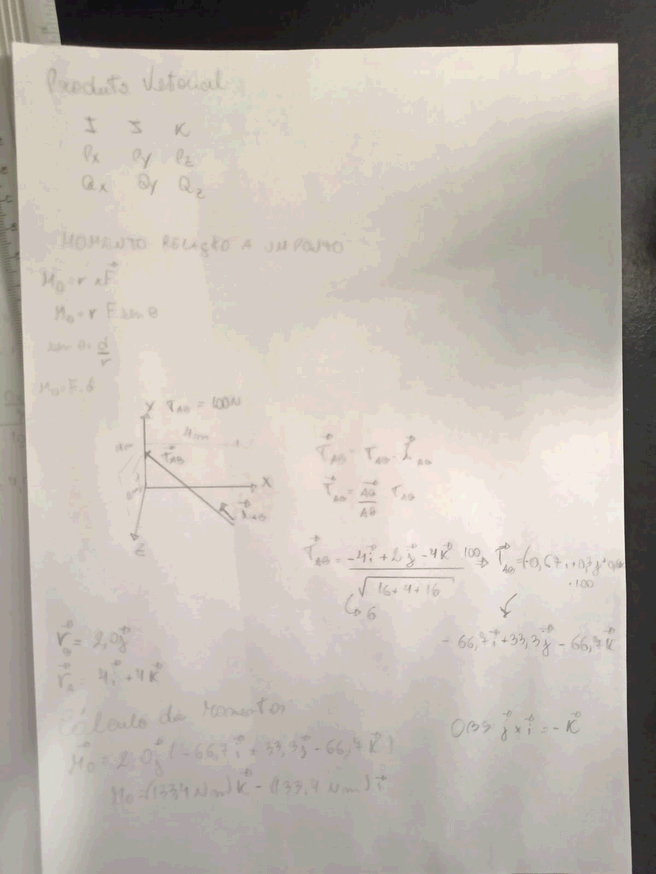 Produto Vetorial
I J K
Px Py Pz
Qx Qy Qz
MOMENTO RELAÇÃO A UM PONTO
M₀ = r F⃗
M₀ = r F sen θ
sen θ = d/r
M₀ = F.d
Y T_AB = 100N
4m
T⃗_AB
X
Z
T⃗_AB = T_AB . λ⃗_AB
T⃗_AB = A⃗B/AB T_AB
T⃗_AB = (-4i⃗ + 2j⃗ - 4k⃗)/√(16+4+16) 100 ⇒ T⃗_AB = (-0,67i
↳ 6
.100
-66,7i⃗ + 33,3j⃗ - 66,7k⃗
r⃗ = 2,0j⃗
r⃗ = 4i⃗ + 4k⃗
Cálculo de Momentos
OBS: j⃗ x i⃗ = -k⃗
M⃗₀ = 2,0j⃗ (-66,7i⃗ + 33,3j⃗ - 66,7k⃗)
M₀ = (133,4 Nm)k⃗ - (133,4 Nm)i⃗